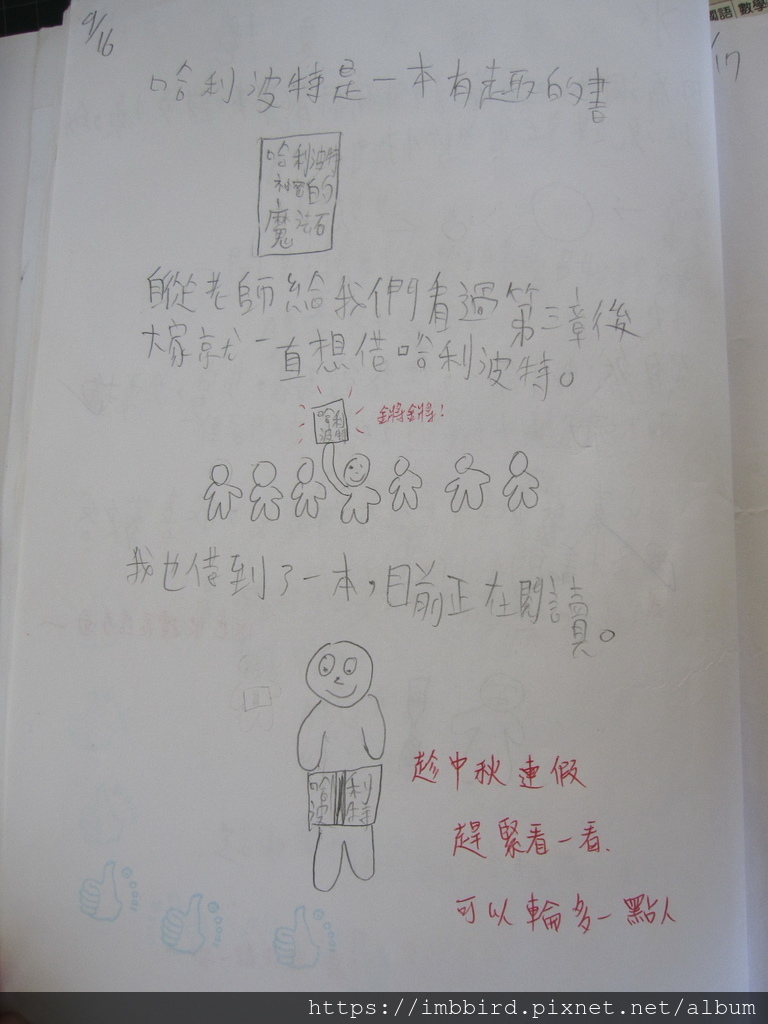 9/16
國語 數學
/17
哈利波特是一本有趣的書
哈利波特
神密的
魔法石
自從老師給我們看過第三章後
大家就一直想借哈利波特。
哈利
波特
鏘鏘!
我也借到了一本,目前正在閱讀。
哈 利
波 特
趁中秋連假
趕緊看一看.
可以輪多一點人
Good
Good
Good
https://imbbird.pixnet.net/album